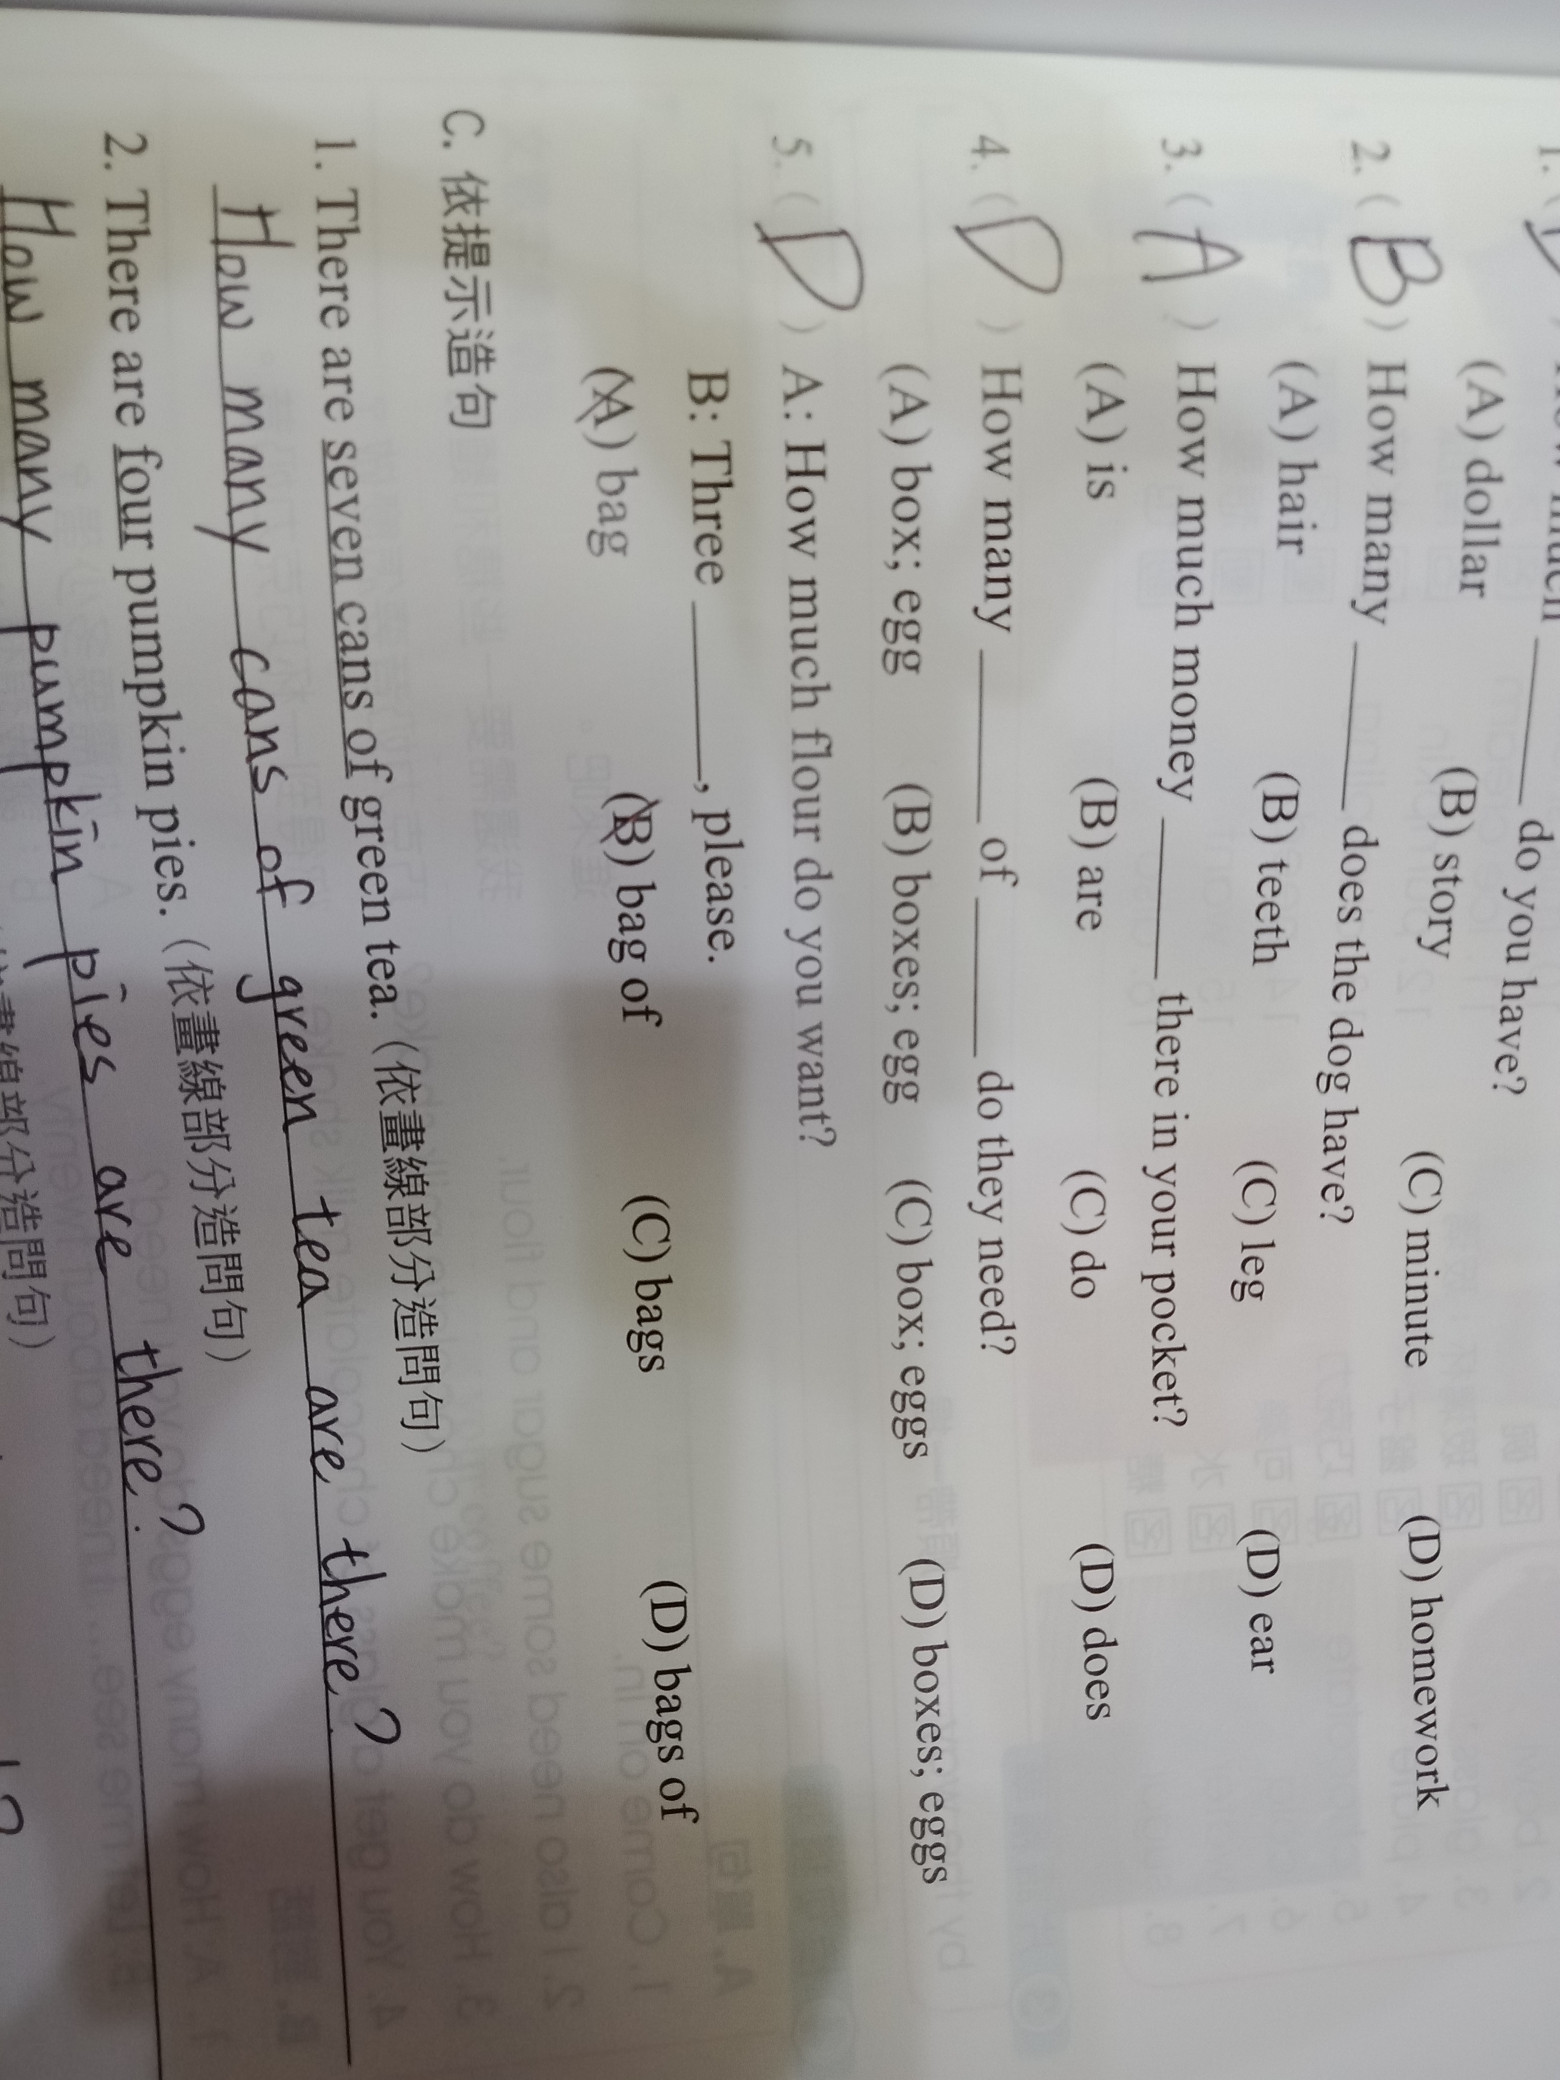 1. ( D ) How much ______ do you have?
(A) dollar (B) story (C) minute (D) homework
2. ( B ) How many ______ does the dog have?
(A) hair (B) teeth (C) leg (D) ear
3. ( A ) How much money ______ there in your pocket?
(A) is (B) are (C) do (D) does
4. ( D ) How many ______ of ______ do they need?
(A) box; egg (B) boxes; egg (C) box; eggs (D) boxes; eggs
5. ( D ) A: How much flour do you want?
B: Three ______, please.
(A) bag (B) bag of (C) bags (D) bags of
C. 依提示造句
1. There are seven cans of green tea. (依畫線部分造問句)
How many cans of green tea are there?
2. There are four pumpkin pies. (依畫線部分造問句)
How many pumpkin pies are there?
畫線部分造問句)